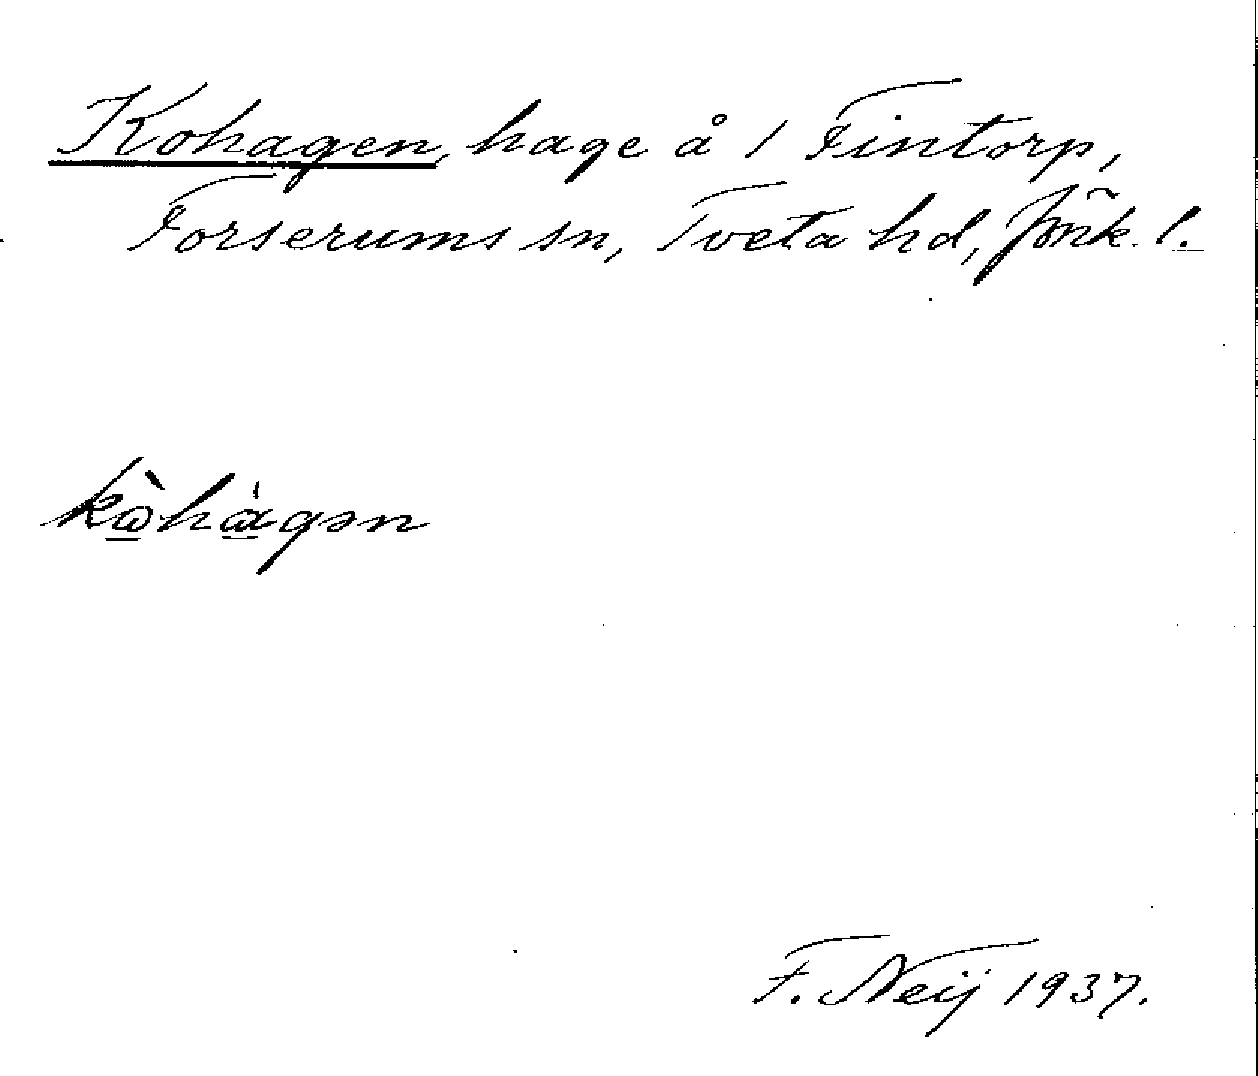 Kohagen, hage å 1 Fintorp,
Forserums sn, Tveta hd, Jönk. l.
kὼhὰgən
F. Neij 1937.